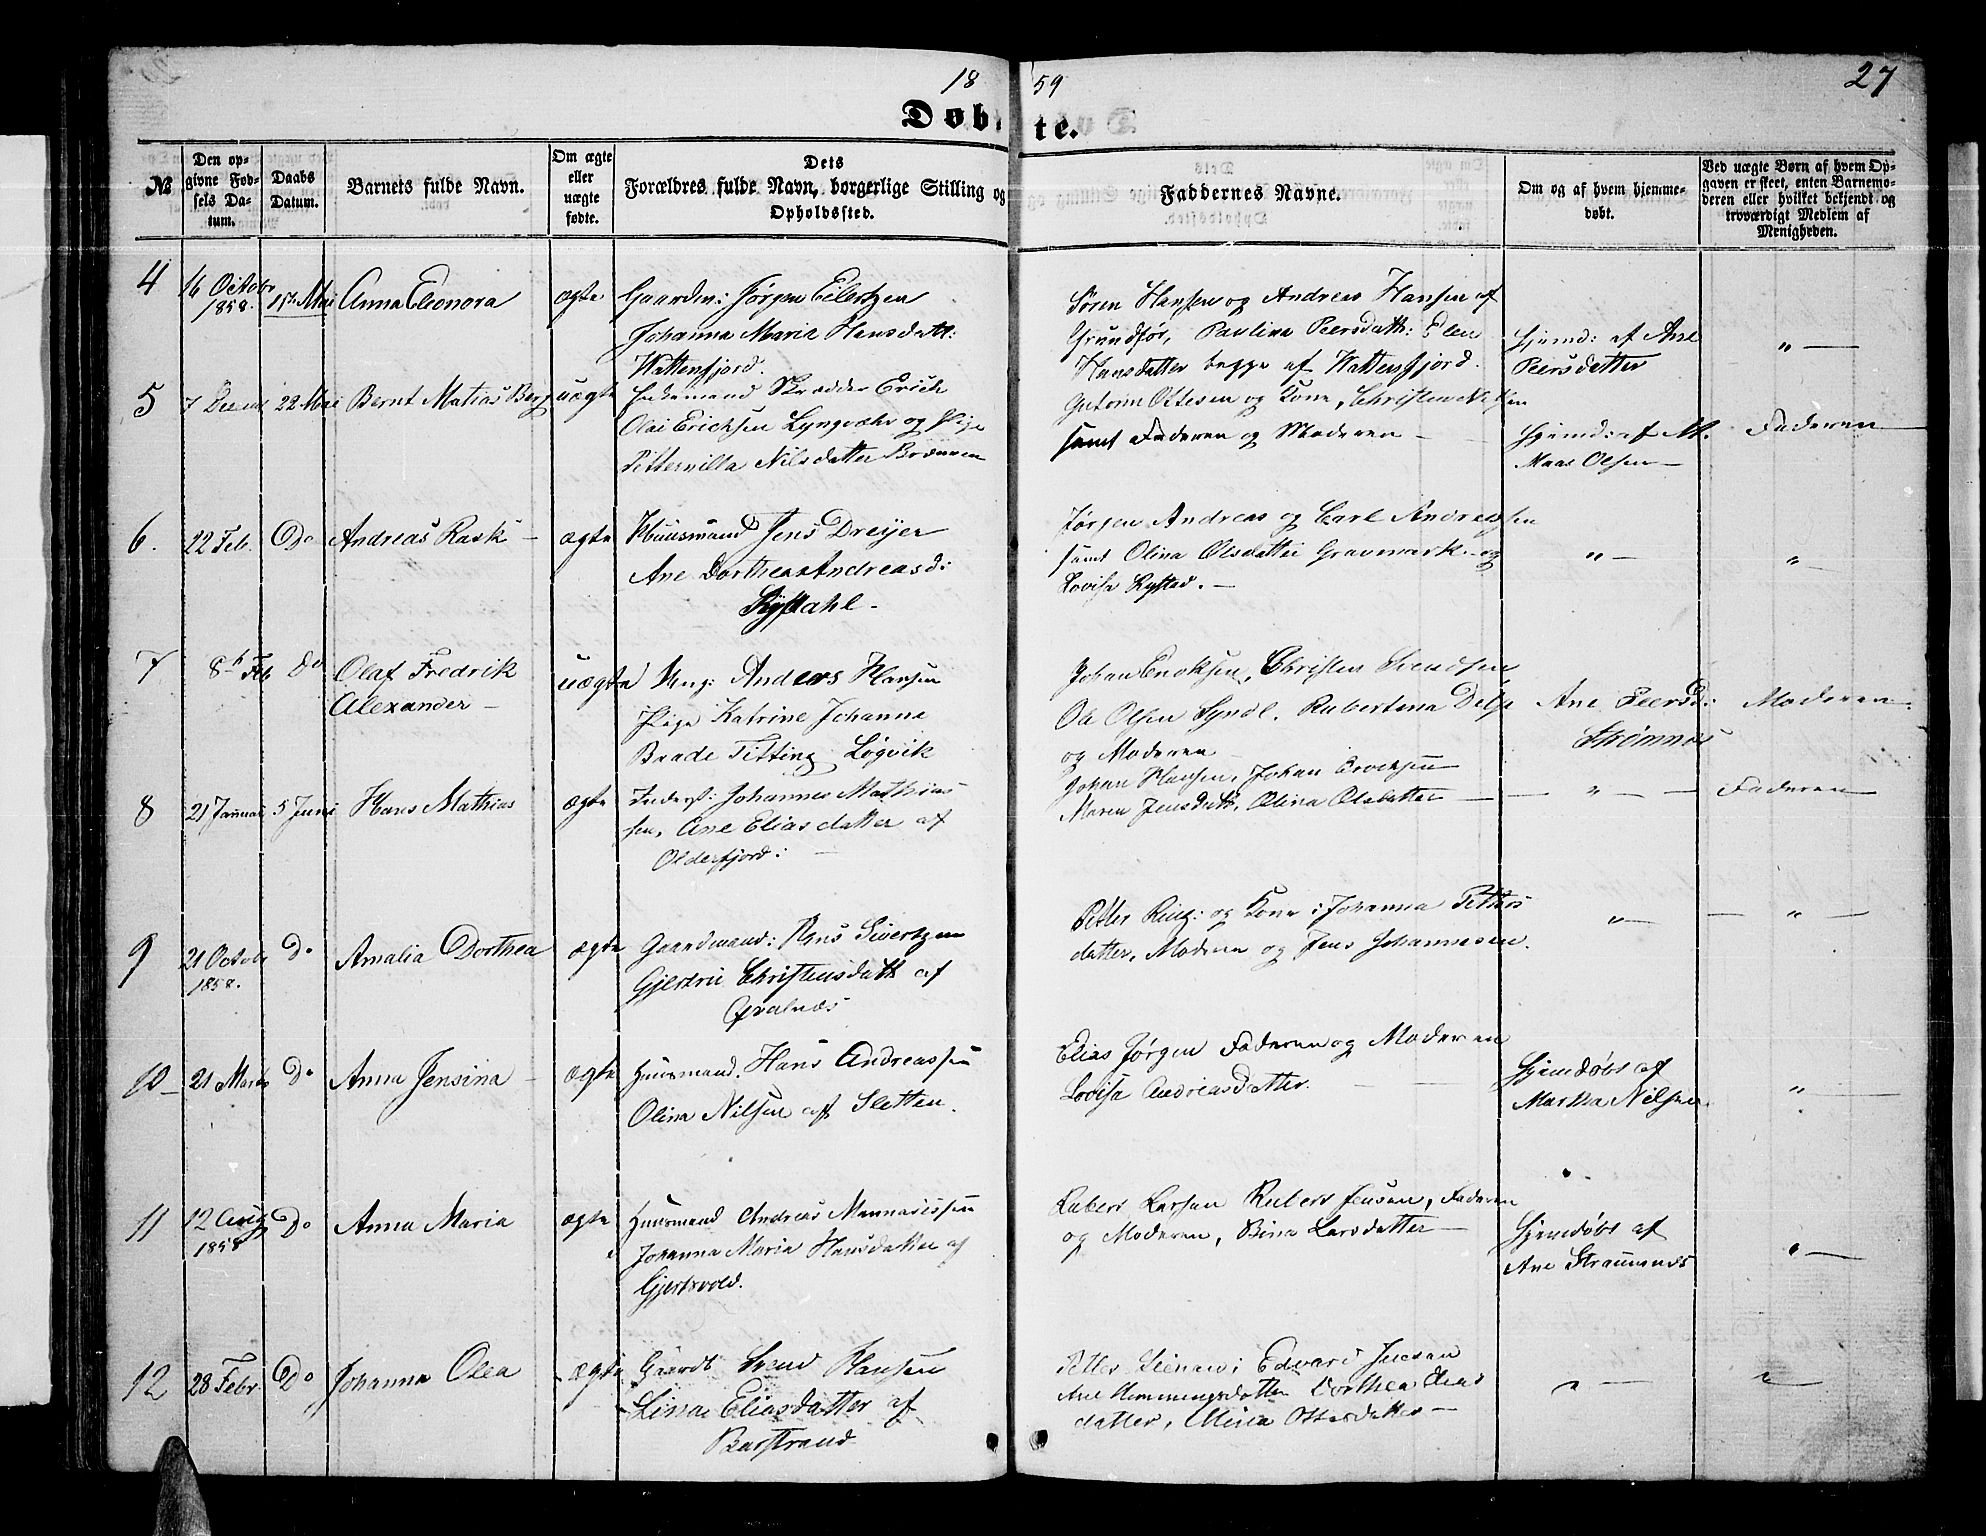 18 59
27
Døbte.
№
Den opgivne Fødsels Datum.
Daabs Datum.
Barnets fulde Navn.
Om ægte eller uægte fødte.
Dets Forældres fulde Navn, borgerlige Stilling og Opholdssted.
Faddernes Navne.
Om og af hvem hjemmedøbt.
Ved uægte Børn af hvem Opgaven er skeet, enten Barnemoderen eller hvilket bekjendt og troværdigt Medlem af Menigheden.
4 16 Octobr 1858. 15de Mai Anna Eleonora ægte Gaardm: Jørgen Eilertzen
Johanna Maria Hansdatt:
Wattenfjord.
Søren Hansen og Andreas Hansen af
Grundfør, Paulina Peersdatt: Elen
Hansdatter begge af Wattenfjord.
Hjemd: af Ane
Peersdatter
" —
5 7 Decemb 22 Mai Bernt Mathias Berg uægte Enkemand Skrædder Erich
Olai Erichsen Lyngvær og Pige
Petternilla Nilsdatter Brænnen
Gutorm Ottesen og Kone, Christen Nilsen
samt Faderen og Moderen —
Hjemd: af M.
Maas Olsen —
Faderen —
6. 22 Feb. Do Andreas Rask — ægte Huusmand Jens Dreyer
Ane Dorthea Andreasd:
Rystahl —
Jørgen Andreas og Carl Andreassen
samt Olina Olsdatter Gravmark — og
Lovisa Rystad. —
" —
" —
7 8de Feb Do Olaf Fredrik
Alexander —
uægte Ung: Anders Hansen
Pige Katrine Johanne
Brade Titting Løgvik
Johan Enoksen, Christen Svendsen
Ole Olsen Syndl. Rubertena Delp
og Moderen
Ane Peersd:
Strømnæs
Moderen.
8 21 Januar 5 Juni Hans Mathias ægte Inderst: Johannes Mathias
sen, Ane Eliasdatter af
Olderfjord: —
Johan Hansen, Johan Enocksen
Maren Jensdatt, Olina Olsdatter —
— " —
Faderen
9 21 Octobr 1858. Do Amalia Dorthea ægte Gaardmand: Hans Sivertzen
Gjertru Christensdatt af
Qvalnæs
Petter Ring: og Kone: Johanna Petters
datter, Moderen og Jens Johannesen.
" —
— " —
10 — 21 Marts Do Anna Jensina — ægte Huusmand. Hans Andreassen
Olina Nilsen af Sletten.
Elias Jørgen Faderen og Moderen
Lovisa Andreasdatter.
Hjemdøbt af
Martha Nilsen.
" —
11 12 Aug 1858 Do Anna Maria ægte Huusmand Andreas Mannasissen
Johanna Maria Hansdatter af
Gjertsvold.
Rubert Larsen Rubert Jensen, Faderen
og Moderen, Bina Larsdatter —
Hjemdøbt af
Ane Straumnæs
" —
12 28 Febr. Do Johanna Olea ægte Gaardb Svend Hansen
Lina Eliasdatter af
Barstrand
Petter Edvard Jensen
Ane Hemmingsdatter Dorthea Elias
datter, Mina Ottesdatter —
" —
" —